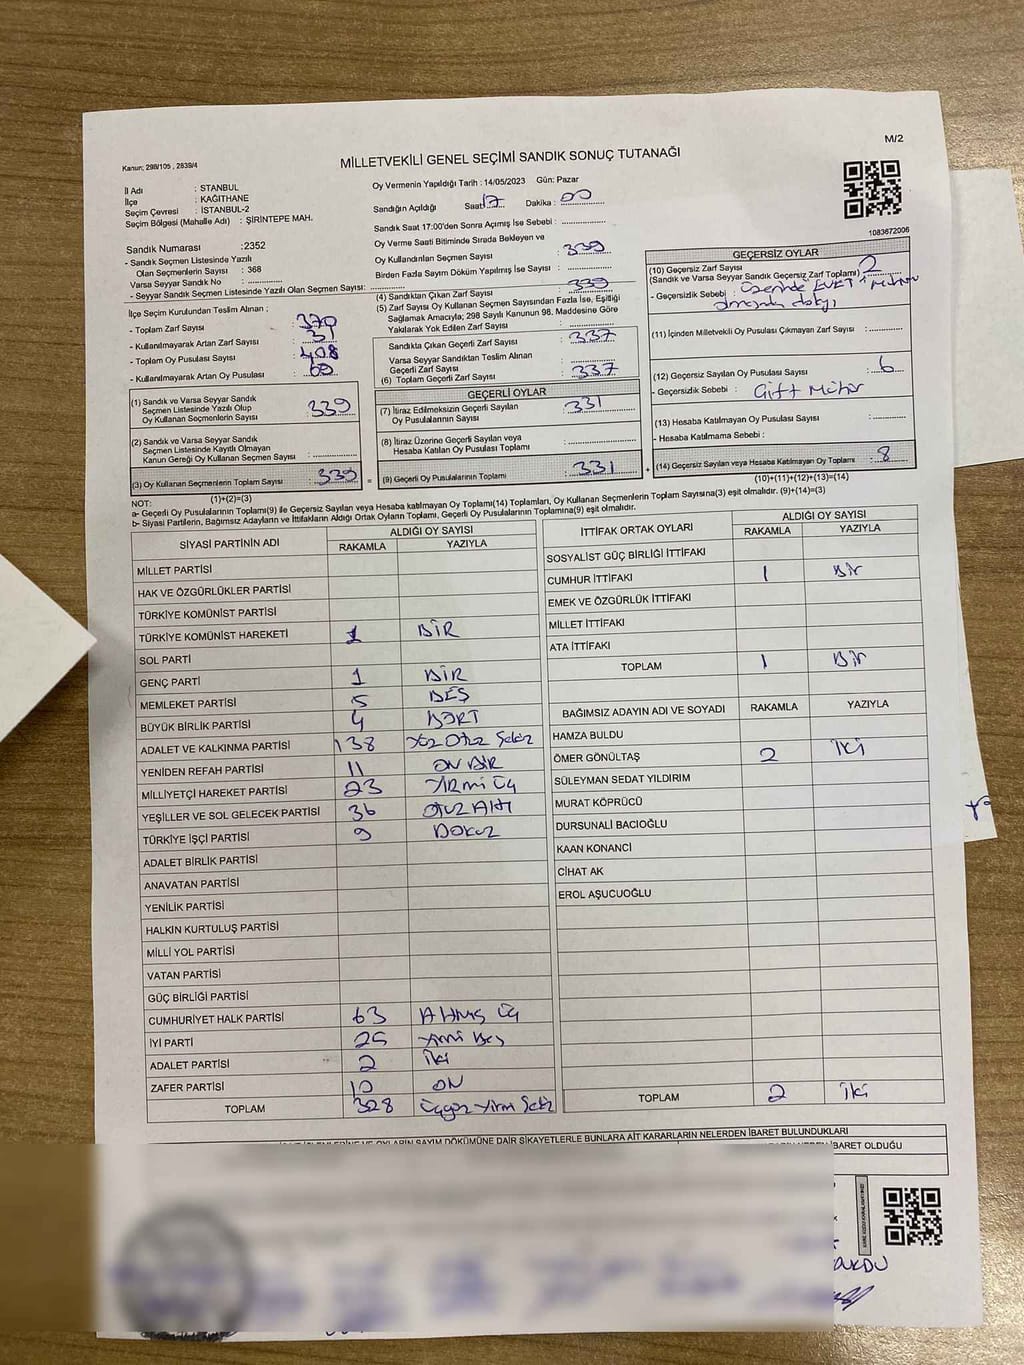 M/2
Kanun; 298/105 , 2839/4
MİLLETVEKİLİ GENEL SEÇİMİ SANDIK SONUÇ TUTANAĞI
İl Adı : İSTANBUL
İlçe : KAĞITHANE
Seçim Çevresi : İSTANBUL-2
Seçim Bölgesi (Mahalle Adı) : ŞİRİNTEPE MAH.
Sandık Numarası :2352
- Sandık Seçmen Listesinde Yazılı
Olan Seçmenlerin Sayısı : 368
Varsa Seyyar Sandık No :
- Seyyar Sandık Seçmen Listesinde Yazılı Olan Seçmen Sayısı:
İlçe Seçim Kurulundan Teslim Alınan ;
- Toplam Zarf Sayısı : 370
- Kullanılmayarak Artan Zarf Sayısı : 31
- Toplam Oy Pusulası Sayısı : 408
- Kullanılmayarak Artan Oy Pusulası : 69
(1) Sandık ve Varsa Seyyar Sandık
Seçmen Listesinde Yazılı Olup
Oy Kullanan Seçmenlerin Sayısı : 339
(2) Sandık ve Varsa Seyyar Sandık
Seçmen Listesinde Kayıtlı Olmayan
Kanun Gereği Oy Kullanan Seçmen Sayısı :
(3) Oy Kullanan Seçmenlerin Toplam Sayısı : 339
(1)+(2)=(3)
Oy Vermenin Yapıldığı Tarih : 14/05/2023 Gün: Pazar
Sandığın Açıldığı Saat: 17 Dakika : 00
Sandık Saat 17:00'den Sonra Açılmış İse Sebebi :
Oy Verme Saati Bitiminde Sırada Bekleyen ve
Oy Kullandırılan Seçmen Sayısı : 339
Birden Fazla Sayım Döküm Yapılmış İse Sayısı :
(4) Sandıktan Çıkan Zarf Sayısı : 339
(5) Zarf Sayısı Oy Kullanan Seçmen Sayısından Fazla İse, Eşitliği
Sağlamak Amacıyla; 298 Sayılı Kanunun 98. Maddesine Göre
Yakılarak Yok Edilen Zarf Sayısı :
Sandıkta Çıkan Geçerli Zarf Sayısı : 337
Varsa Seyyar Sandıktan Teslim Alınan
Geçerli Zarf Sayısı :
(6) Toplam Geçerli Zarf Sayısı : 337
GEÇERLİ OYLAR
(7) İtiraz Edilmeksizin Geçerli Sayılan
Oy Pusulalarının Sayısı : 331
(8) İtiraz Üzerine Geçerli Sayılan veya
Hesaba Katılan Oy Pusulası Toplamı :
= (9) Geçerli Oy Pusulalarının Toplamı : 331 +
1083672006
GEÇERSİZ OYLAR
(10) Geçersiz Zarf Sayısı
(Sandık ve Varsa Seyyar Sandık Geçersiz Zarf Toplamı) : 2
- Geçersizlik Sebebi : üzerinde EVET Mührü
olmasından dolayı
(11) İçinden Milletvekili Oy Pusulası Çıkmayan Zarf Sayısı :
(12) Geçersiz Sayılan Oy Pusulası Sayısı : 6
- Geçersizlik Sebebi : Çift Mühür
(13) Hesaba Katılmayan Oy Pusulası Sayısı :
- Hesaba Katılmama Sebebi :
(14) Geçersiz Sayılan veya Hesaba Katılmayan Oy Toplamı : 8
(10)+(11)+(12)+(13)=(14)
NOT:
a- Geçerli Oy Pusulasının Toplamı(9) ile Geçersiz Sayılan veya Hesaba katılmayan Oy Toplamı(14) Toplamları, Oy Kullanan Seçmenlerin Toplam Sayısına(3) eşit olmalıdır. (9)+(14)=(3)
b- Siyasi Partilerin, Bağımsız Adayların ve İttifakların Aldığı Ortak Oyların Toplamı, Geçerli Oy Pusulalarının Toplamına(9) eşit olmalıdır.
SİYASİ PARTİNİN ADI ALDIĞI OY SAYISI
RAKAMLA YAZIYLA
MİLLET PARTİSİ
HAK VE ÖZGÜRLÜKLER PARTİSİ
TÜRKİYE KOMÜNİST PARTİSİ
TÜRKİYE KOMÜNİST HAREKETİ 1 BİR
SOL PARTİ
GENÇ PARTİ 1 BİR
MEMLEKET PARTİSİ 5 BEŞ
BÜYÜK BİRLİK PARTİSİ 4 DÖRT
ADALET VE KALKINMA PARTİSİ 138 Yüz Otuz Sekiz
YENİDEN REFAH PARTİSİ 11 ON BİR
MİLLİYETÇİ HAREKET PARTİSİ 23 YİRMİ ÜÇ
YEŞİLLER VE SOL GELECEK PARTİSİ 36 OTUZ ALTI
TÜRKİYE İŞÇİ PARTİSİ 9 DOKUZ
ADALET BİRLİK PARTİSİ
ANAVATAN PARTİSİ
YENİLİK PARTİSİ
HALKIN KURTULUŞ PARTİSİ
MİLLİ YOL PARTİSİ
VATAN PARTİSİ
GÜÇ BİRLİĞİ PARTİSİ
CUMHURİYET HALK PARTİSİ 63 Altmış üç
İYİ PARTİ 25 Yirmi Beş
ADALET PARTİSİ 2 İki
ZAFER PARTİSİ 10 ON
TOPLAM 328 Üçyüz Yirmi Sekiz
İTTİFAK ORTAK OYLARI ALDIĞI OY SAYISI
RAKAMLA YAZIYLA
SOSYALİST GÜÇ BİRLİĞİ İTTİFAKI
CUMHUR İTTİFAKI 1 Bir
EMEK VE ÖZGÜRLÜK İTTİFAKI
MİLLET İTTİFAKI
ATA İTTİFAKI
TOPLAM 1 Bir
BAĞIMSIZ ADAYIN ADI VE SOYADI RAKAMLA YAZIYLA
HAMZA BULDU
ÖMER GÖNÜLTAŞ 2 İki
SÜLEYMAN SEDAT YILDIRIM
MURAT KÖPRÜCÜ
DURSUNALİ BACIOĞLU
KAAN KONANCİ
CİHAT AK
EROL AŞUCUOĞLU
TOPLAM 2 İki
OYLARIN SAYIM DÖKÜMÜNE DAİR ŞİKAYETLERLE BUNLARA AİT KARARLARIN NELERDEN İBARET BULUNDUKLARI
NEDEN İBARET OLDUĞU